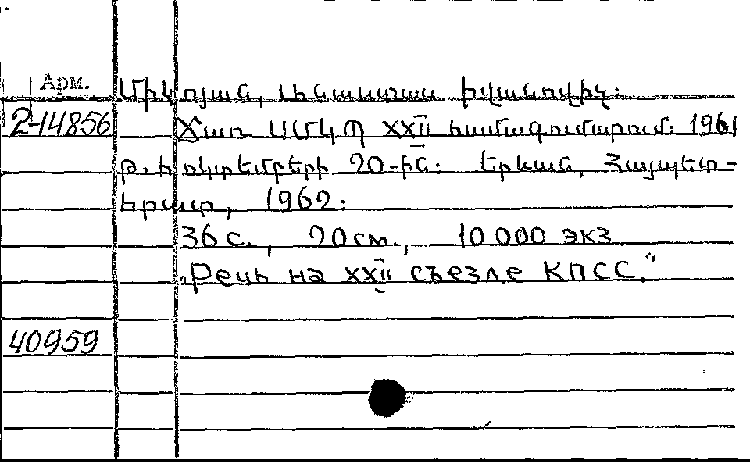 Арм.
Միկոյան, Անաստաս Իվանովիչ:
2-14856
Ճառ ՍՄԿՊ XXII համագումարում 1961
թ. հոկտեմբերի 20-ին: Երևան, Հայպետ-
հրատ, 1962:
36 с., 20 см., 10 000 экз
„Речь на XXII съезде КПСС."
40959